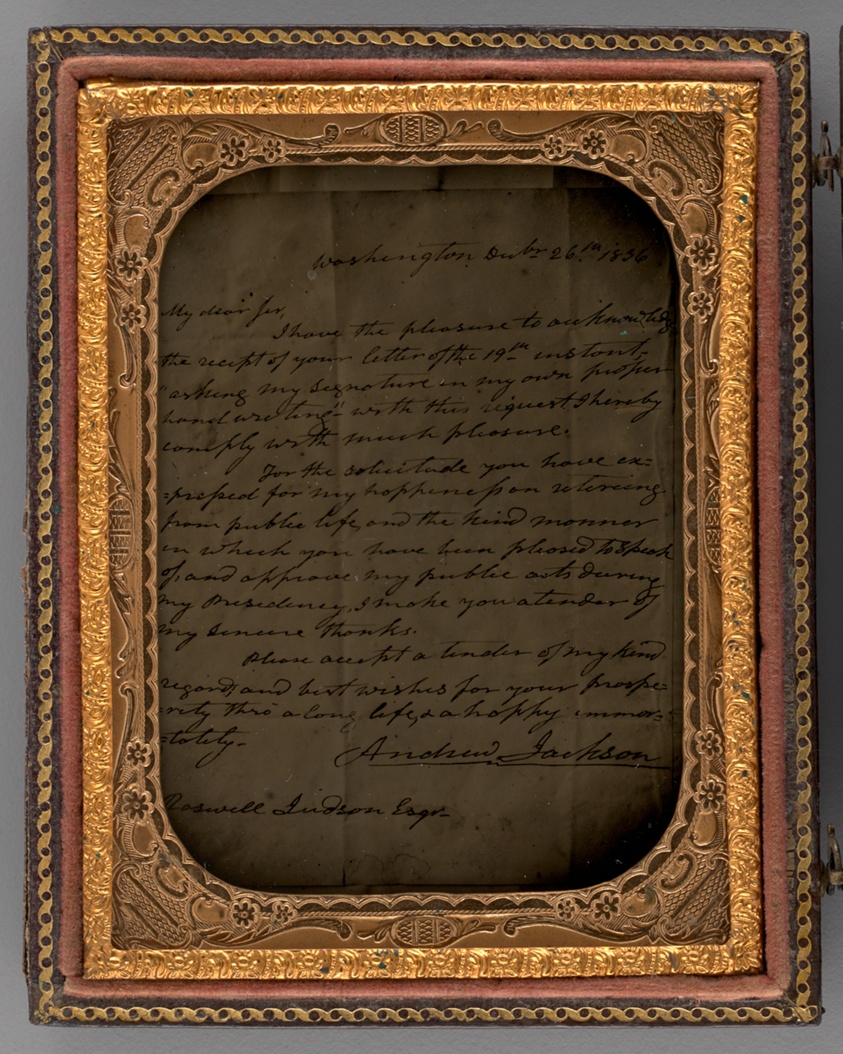 Washington Decbr 26th 1836
My dear Sir,
I have the pleasure to acknowledge
the recipt of your letter of the 19th instant,
"asking my signature in my own proper
hand writing" with this request I hereby
comply with much pleasure.
For the solicitude you have ex=
=pressed for my happiness on retiring
from public life, and the kind manner
in which you have been pleased to speak
of, and approve my public acts during
my Presidency, I make you a tender of
my sincere thanks.
Please accept a tender of my kind
regards, and best wishes for your prospe=
=rity thro a long life, & a happy immor=
=tality.
Andrew Jackson
Roswell Judson Esqr.